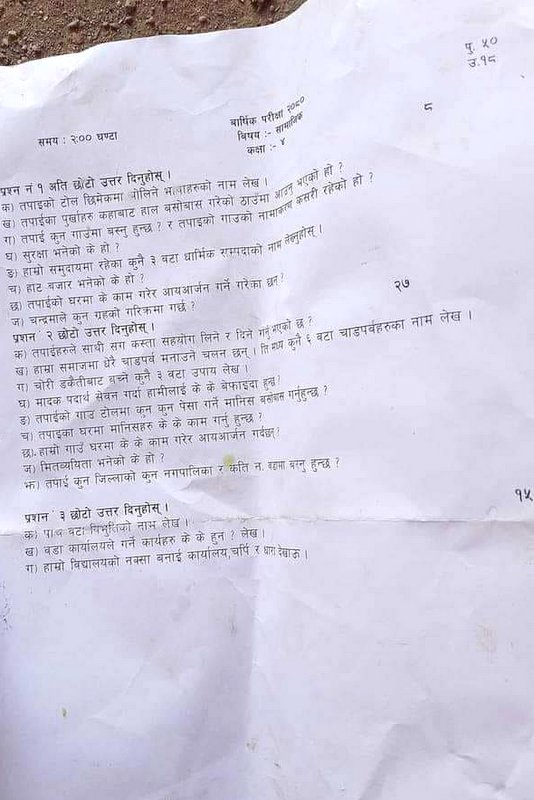 पु. ५०
उ.१८
बार्षिक परीक्षा २०८०
समय : २:०० घण्टा
बिषय :- सामाजिक
कक्षा :- ४
८
प्रश्न नं १ अति छोटो उत्तर दिनुहोस् ।
क) तपाइको टोल छिमेकमा बोलिने भाषाहरुको नाम लेख ।
ख) तपाईका पुर्खाहरु कहाबाट हाल बसोबास गरेको ठाउँमा आउनु भएको हो ?
ग) तपाई कुन गाउँमा बस्नु हुन्छ ? र तपाइको गाउको नामाकरण कसरी रहेको हो ?
घ) सुरक्षा भनेको के हो ?
ङ) हाम्रो समुदायमा रहेका कुनै ३ वटा धार्मिक सम्पदाको नाम लेख्नुहोस् ।
च) हाट बजार भनेको के हो ?
छ) तपाईको घरमा के काम गरेर आयआर्जन गर्ने गरेका छन् ?
ज) चन्द्रमाले कुन ग्रहको परिक्रमा गर्छ ?
२७
प्रशन २ छोटो उत्तर दिनुहोस् ।
क) तपाईहरुले साथी संग कस्ता सहयोग लिने र दिने गर्नु भएको छ ?
ख) हाम्रा समाजमा धेरै चाडपर्व मनाउने चलन छन् । ति मध्य कुनै ६ वटा चाडपर्वहरुका नाम लेख ।
ग) चोरी डकैतीबाट बच्ने कुनै ३ वटा उपाय लेख ।
घ) मादक पदार्थ सेवन गर्दा हामीलाई के के बेफाइदा हुन्छ ?
ङ) तपाईको गाउ टोलमा कुन कुन पेसा गर्ने मानिस बसोबास गर्नुहुन्छ ?
च) तपाइका घरमा मानिसहरु के के काम गर्नु हुन्छ ?
छ). हाम्रो गाउँ घरमा के के काम गरेर आयआर्जन गर्दछन् ?
ज) मितव्ययिता भनेको के हो ?
झ) तपाई कुन जिल्लाको कुन नगपालिका र कति न. वडामा बस्नु हुन्छ ?
१५
प्रशन ३ छोटो उत्तर दिनुहोस् ।
क) पाच वटा विभुतिको नाम लेख ।
ख) वडा कार्यालयले गर्ने कार्यहरु के के हुन ? लेख ।
ग) हाम्रो विद्यालयको नक्सा बनाई कार्यालय,चर्पि र धारा देखाऊ ।